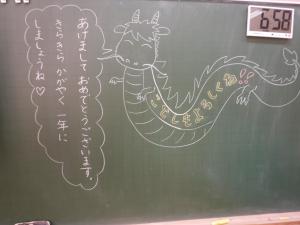 あけまして おめでとうございます。
きらきら かがやく 一年に
しましょうね♡
ことしもよろしくね!!
6:58